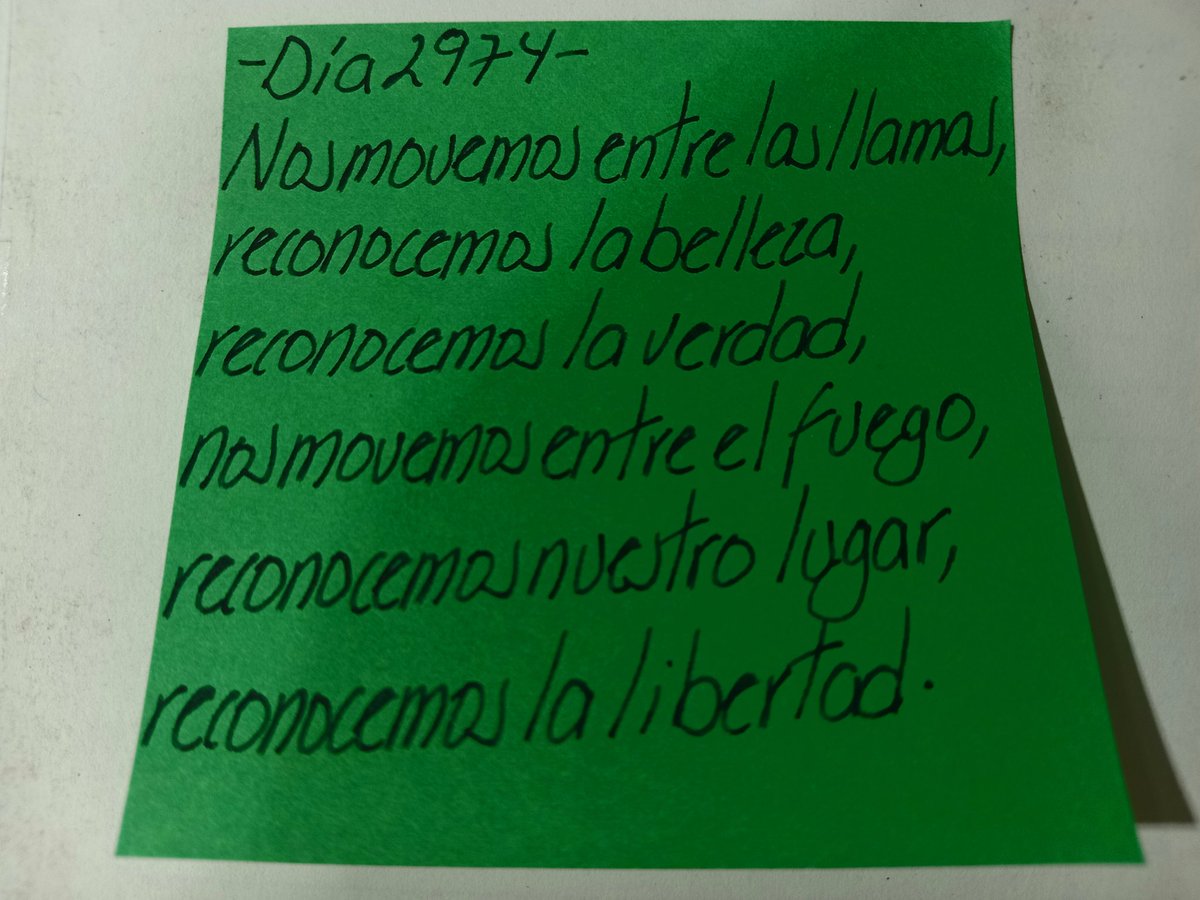 -Día 2974-
Nos movemos entre las llamas,
reconocemos la belleza,
reconocemos la verdad,
nos movemos entre el fuego,
reconocemos nuestro lugar,
reconocemos la libertad.